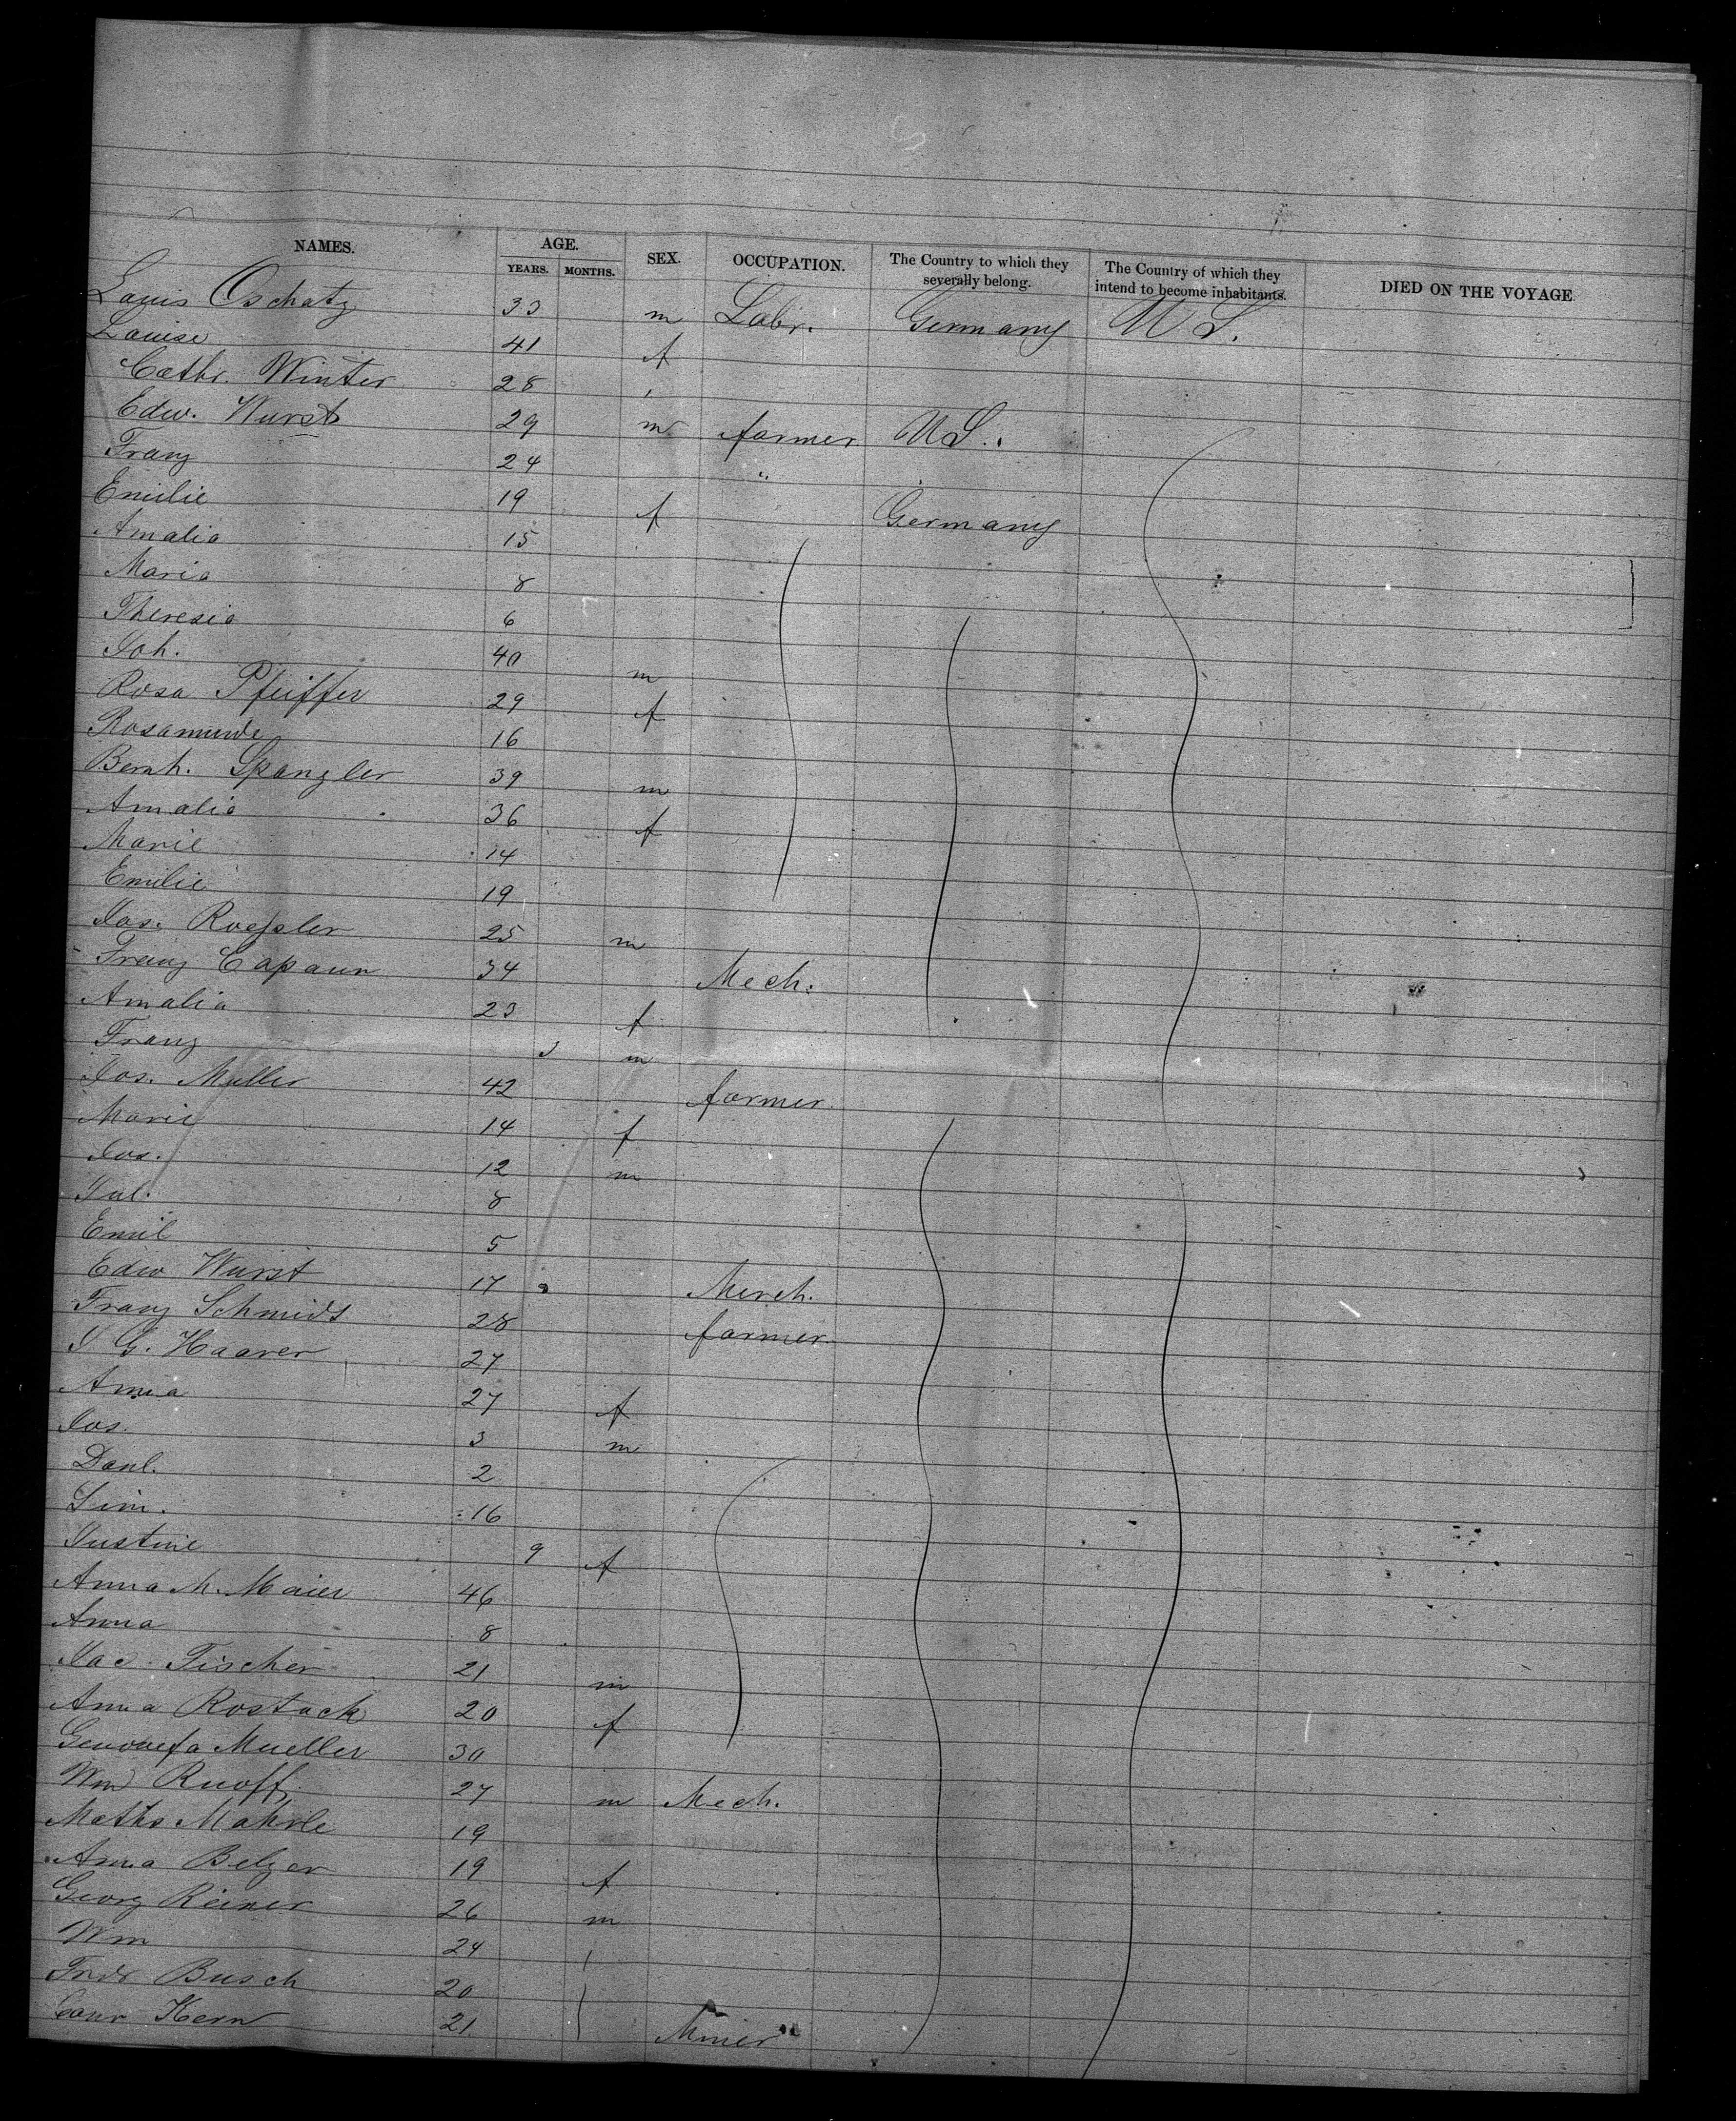 NAMES. AGE. SEX. OCCUPATION. The Country to which they severally belong. The Country of which they intend to become inhabitants. DIED ON THE VOYAGE
YEARS. MONTHS.
Louis Oschatz 33 m Labr. Germany U S.
Louise 41 f
Cathr. Winter 28 ,
Edw. Wurst 29 m farmer U S.
Franz 24 "
Emilie 19 f Germany
Amalia 15
Maria 8
Theresia 6
Joh. 40 m
Rosa Pfeiffer 29 f
Rosamunde 16
Bernh. Spangler 39 m
Amalia 36 f
Marie 14
Emilie 19
Jos. Roessler 25 m
Franz Capaun 34 Mech.
Amalia 23 f
Franz 3 m
Jos. Muller 42 farmer
Marie 14 f
Jos. 12 m
Jul. 8
Emil 5
Edw Wurst 17 Merch.
Franz Schmidt 28 farmer
J G. Haarer 27
Anna 27 f
Jos. 3 m
Danl. 2
Sim. 16
Justine 9 f
Anna M. Maier 46
Anna 8
Jac Fischer 21 m
Anna Rostock 20 f
Genovefa Mueller 30
Wm Ruoff 27 m Mech.
Maths Mahrle 19
Anna Belzer 19 f
Georg Reiner 26 m
Wm 24
Fridr Busch 20
Conr Kern 21 Miner